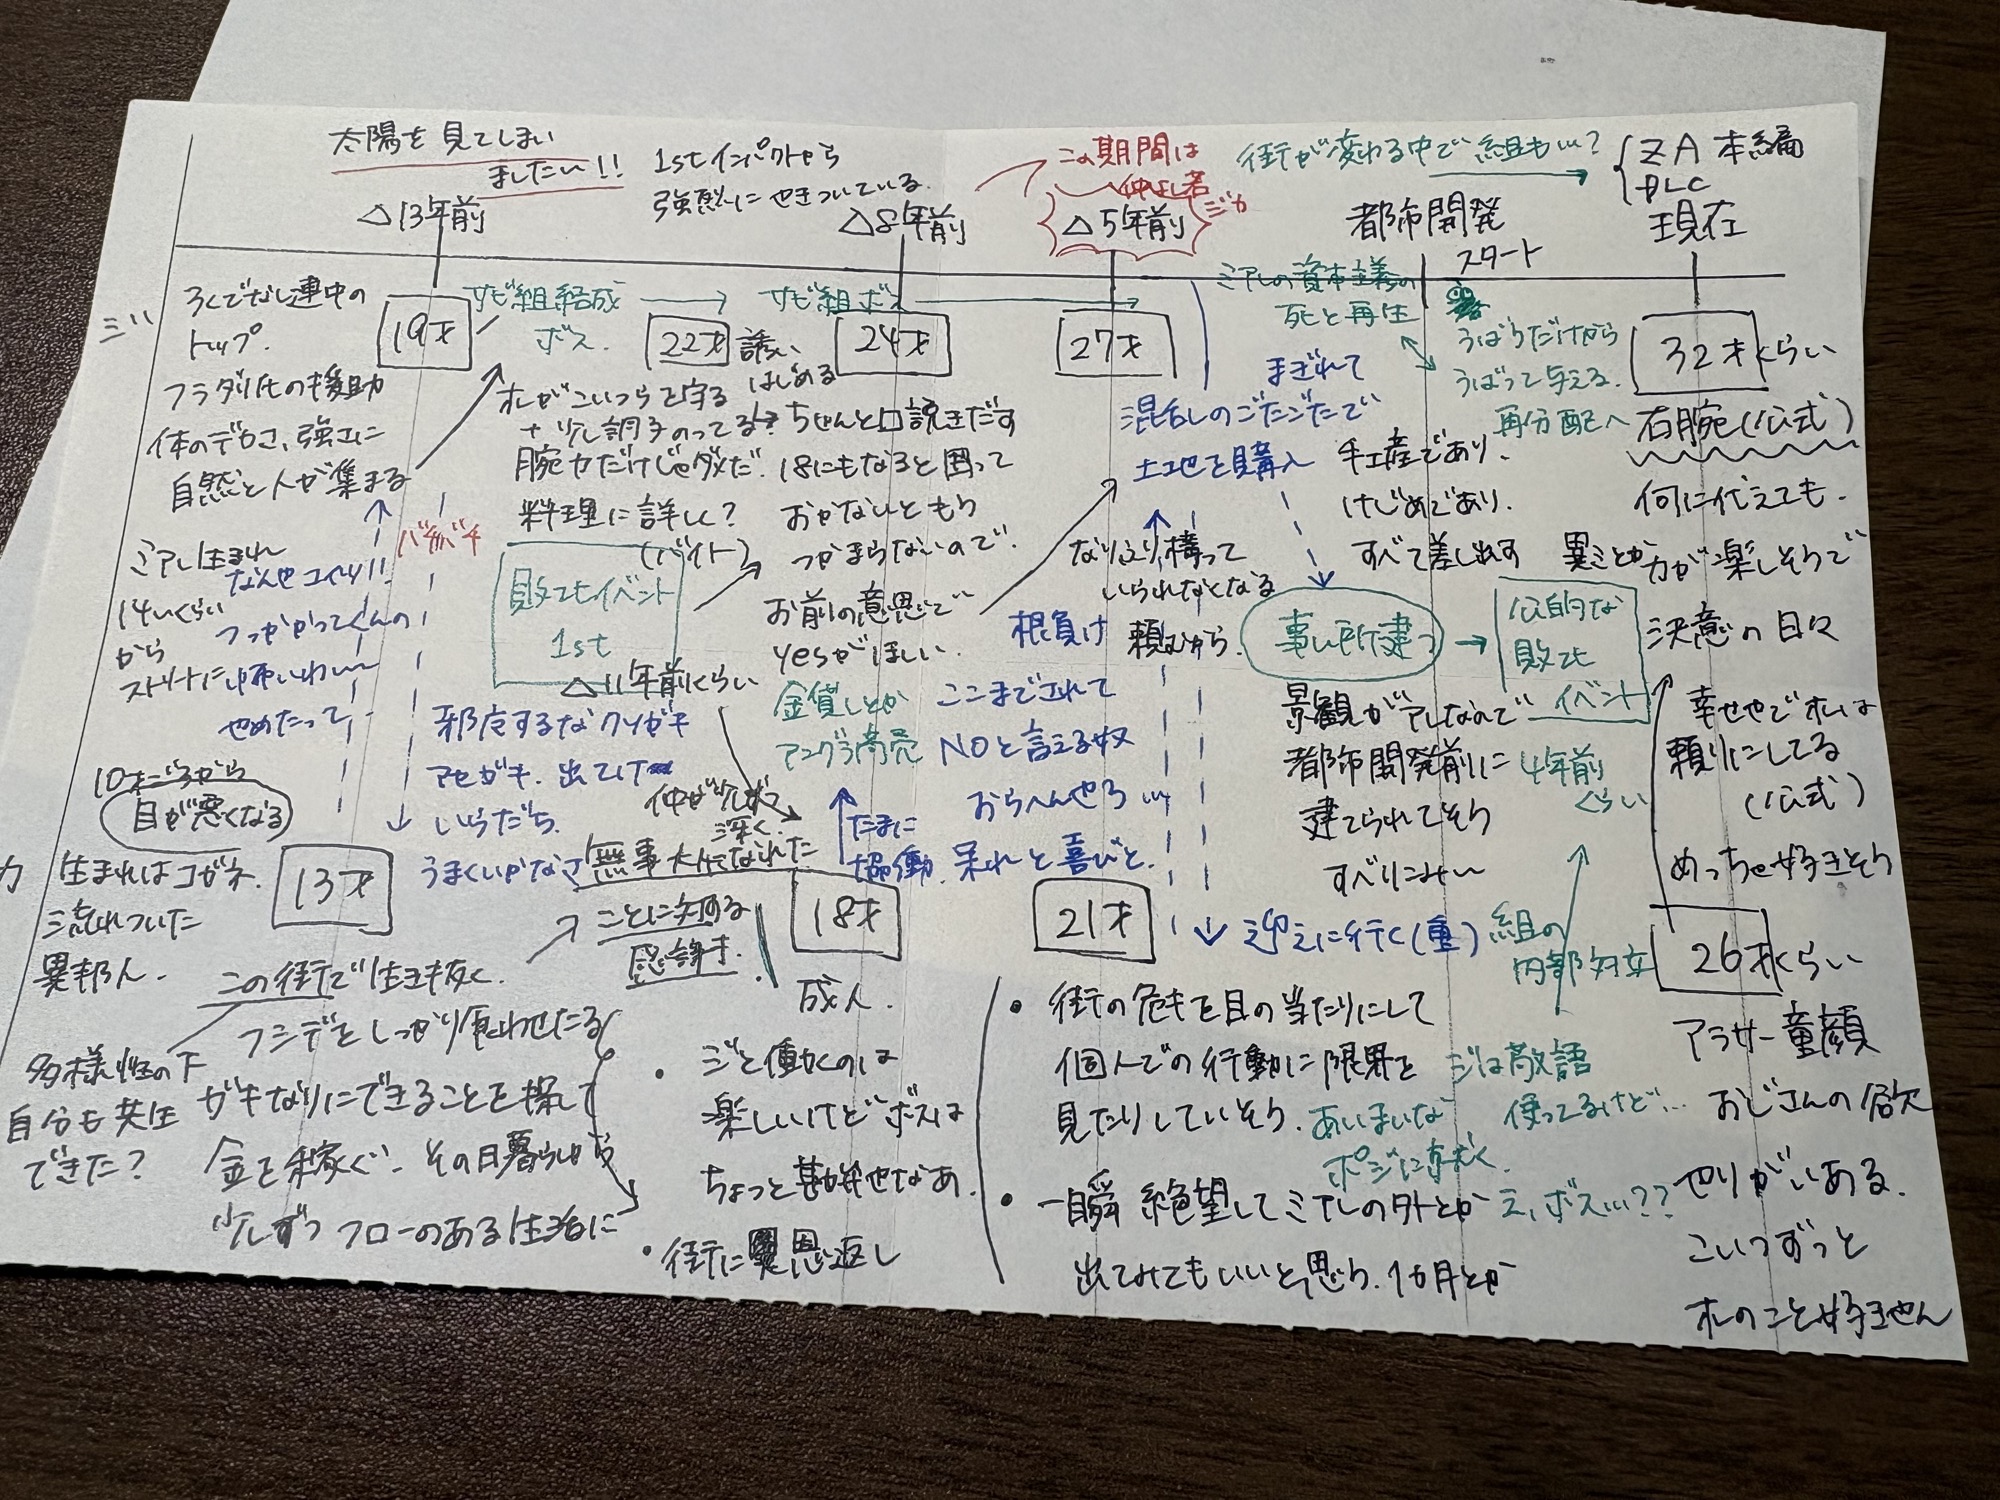 太陽を見てしまい
ましたい!!
1stインパクトから
強烈にやきついている.
この期間は
仲よし君
ジカ
街が変わる中で組も…?
ZA 本編
DLC
△13年前
△8年前
△5年前
都市開発
スタート
現在
ろくでなし連中の
トップ.
フラダリ氏の援助
体のデカさ、強さに
自然と人が集まる
19才
サビ組結成
ボス.
22才
誘い
はじめる
サビ組ボス
24才
27才
ミアレの資本主義の
死と再生
うばうだけから
うばって与える.
再分配へ
32才くらい
オレがこいつらを守る
+少し調子のってる?
腕力だけじゃダメだ.
料理に詳しく?
(バイト)
ちゃんと口説きだす
18にもなると困って
おかないともう
つかまらないので.
お前の意思で
yesがほしい.
まぎれて
混乱のごたごたで
土地を購入
手土産であり.
けじめであり.
すべて差し出す
右腕(公式)
何に代えても.
力が楽しそうで
決意の日々
幸せやでオレは
頼りにしてる
(公式)
めっちゃ好きそう
ミアレ生まれ
14いくらい
から
ストリートに
なんやコイツ!!
つっかかってくんの
やめたって
バチバチ
敗てもイベント
1st
△11年前くらい
金貸しとか
アングラ商売
なりふり構って
いられなくなる
頼むから.
根負け
ここまでされて
NOと言える奴
おらへんやろ…
呆れと喜びと.
事ム所建つ
公的な
敗ても
イベント
4年前
くらい
景観がアレなので
都市開発前に
建てられてそう
すべりこみー
10才ごろから
目が悪くなる
邪店するなクソガキ
アセガキ. 出てけ
いらだち.
うまくいかなさ
仲が少しずつ
深く.
無事大人になれた
ことに対する
感謝を.
たまに
協働.
カ
生まれはコガネ.
流れついた
異邦人.
13才
18才
成人.
21才
迎えに行く(重)
組の
内部対立
26才くらい
この街で生き抜く
多様性の下
自分も共生
できた?
フシデをしっかり食わせたる
ガキなりにできることを探して
金を稼ぐ. その日暮らしから
少しずつ フローのある生活に
・ジと働くのは
楽しいけどボスは
ちょっと勘弁やなあ.
・街に恩返し
・街の危キを目の当たりにして
個人での行動に限界を
見たりしていそう.
・一瞬 絶望してミアレの外とか
出てみてもいいと思う. 1カ月とか
ジは敬語
使ってるけど…
あいまいな
ポジに育く.
え, ボス…??
アラサー童顔
おじさんの欲
やりがいある.
こいつずっと
オレのこと好きやん